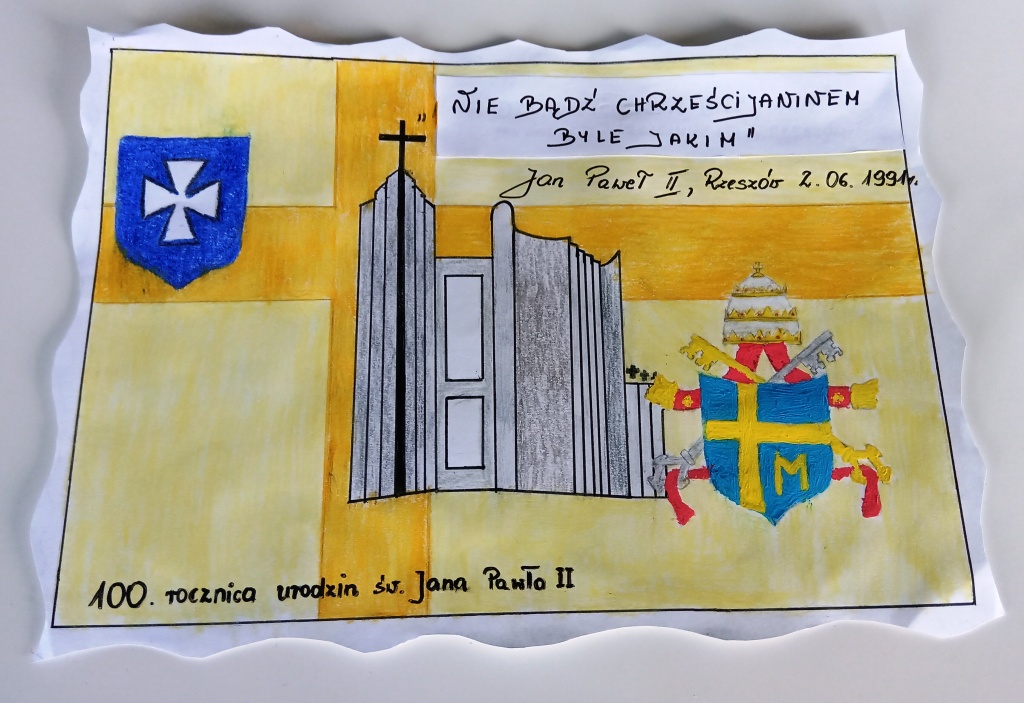 „NIE BĄDŹ CHRZEŚCIJANINEM
BYLE JAKIM"
Jan Paweł II, Rzeszów 2.06.1991r.
M
100. rocznica urodzin św. Jana Pawła II